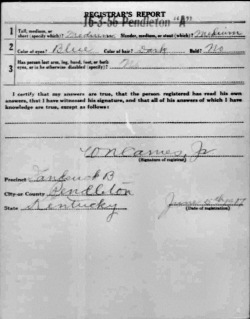 REGISTRAR'S REPORT
16-3-56 Pendleton
1 Tall, medium, or short (specify which)? Medium Slender, medium, or stout (which)? Medium
2 Color of eyes? Blue Color of hair? Dark Bald? No
3 Has person lost arm, leg, hand, foot, or both eyes, or is he otherwise disabled (specify)? No
I certify that my answers are true, that the person registered has read his own
answers, that I have witnessed his signature, and that all of his answers of which I have
knowledge are true, except as follows:
(Signature of registrar)
Precinct B
City or County Pendleton
State Kentucky
(Date of registration)